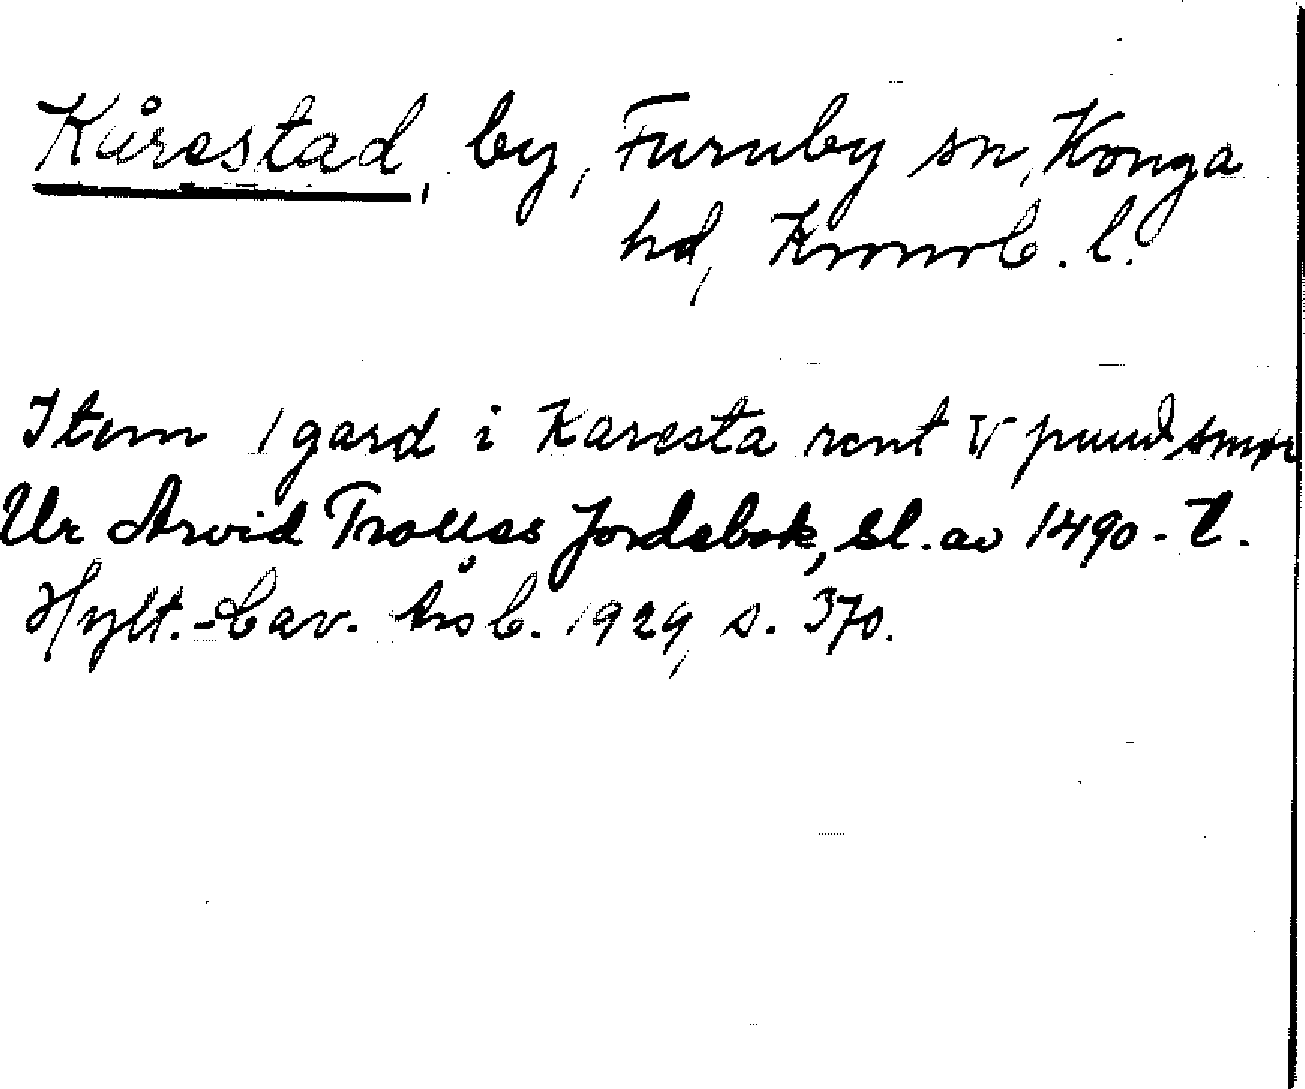 Kårestad, by, Furuby sn, Konga
hd, Kronob. l.
Item 1 gard i Karesta rent V pund smør
Ur Arvid Trolles Jordebok, sl. av 1490-t.
Hylt.-Cav. Årsb. 1929, s. 370.